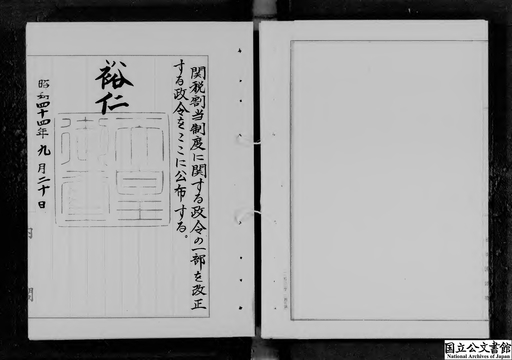 関税割当制度に関する政令の一部を改正
する政令をここに公布する。
裕仁
昭和四十四年九月二十日
天皇
御璽
国立公文書館
National Archives of Japan